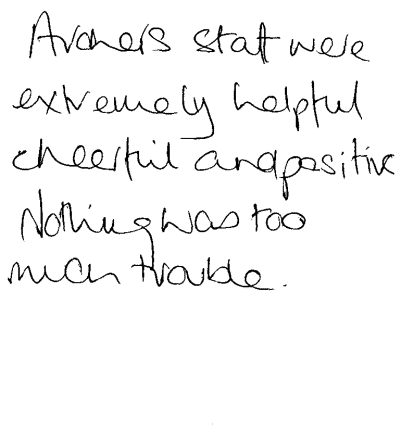 Archers staff were
extremely helpful
cheerful and positive
Nothing was too
much trouble.